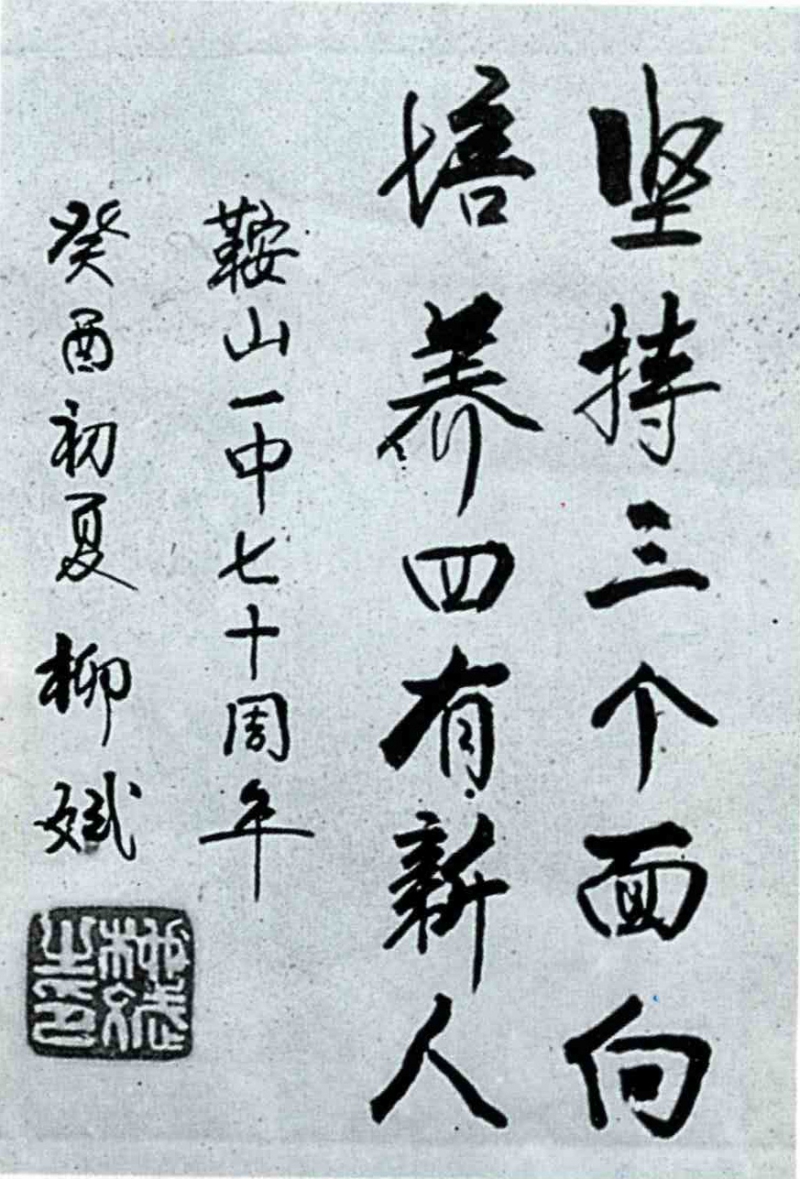 坚持三个面向
培养四有新人
鞍山一中七十周年
癸酉初夏 柳斌
柳斌之印